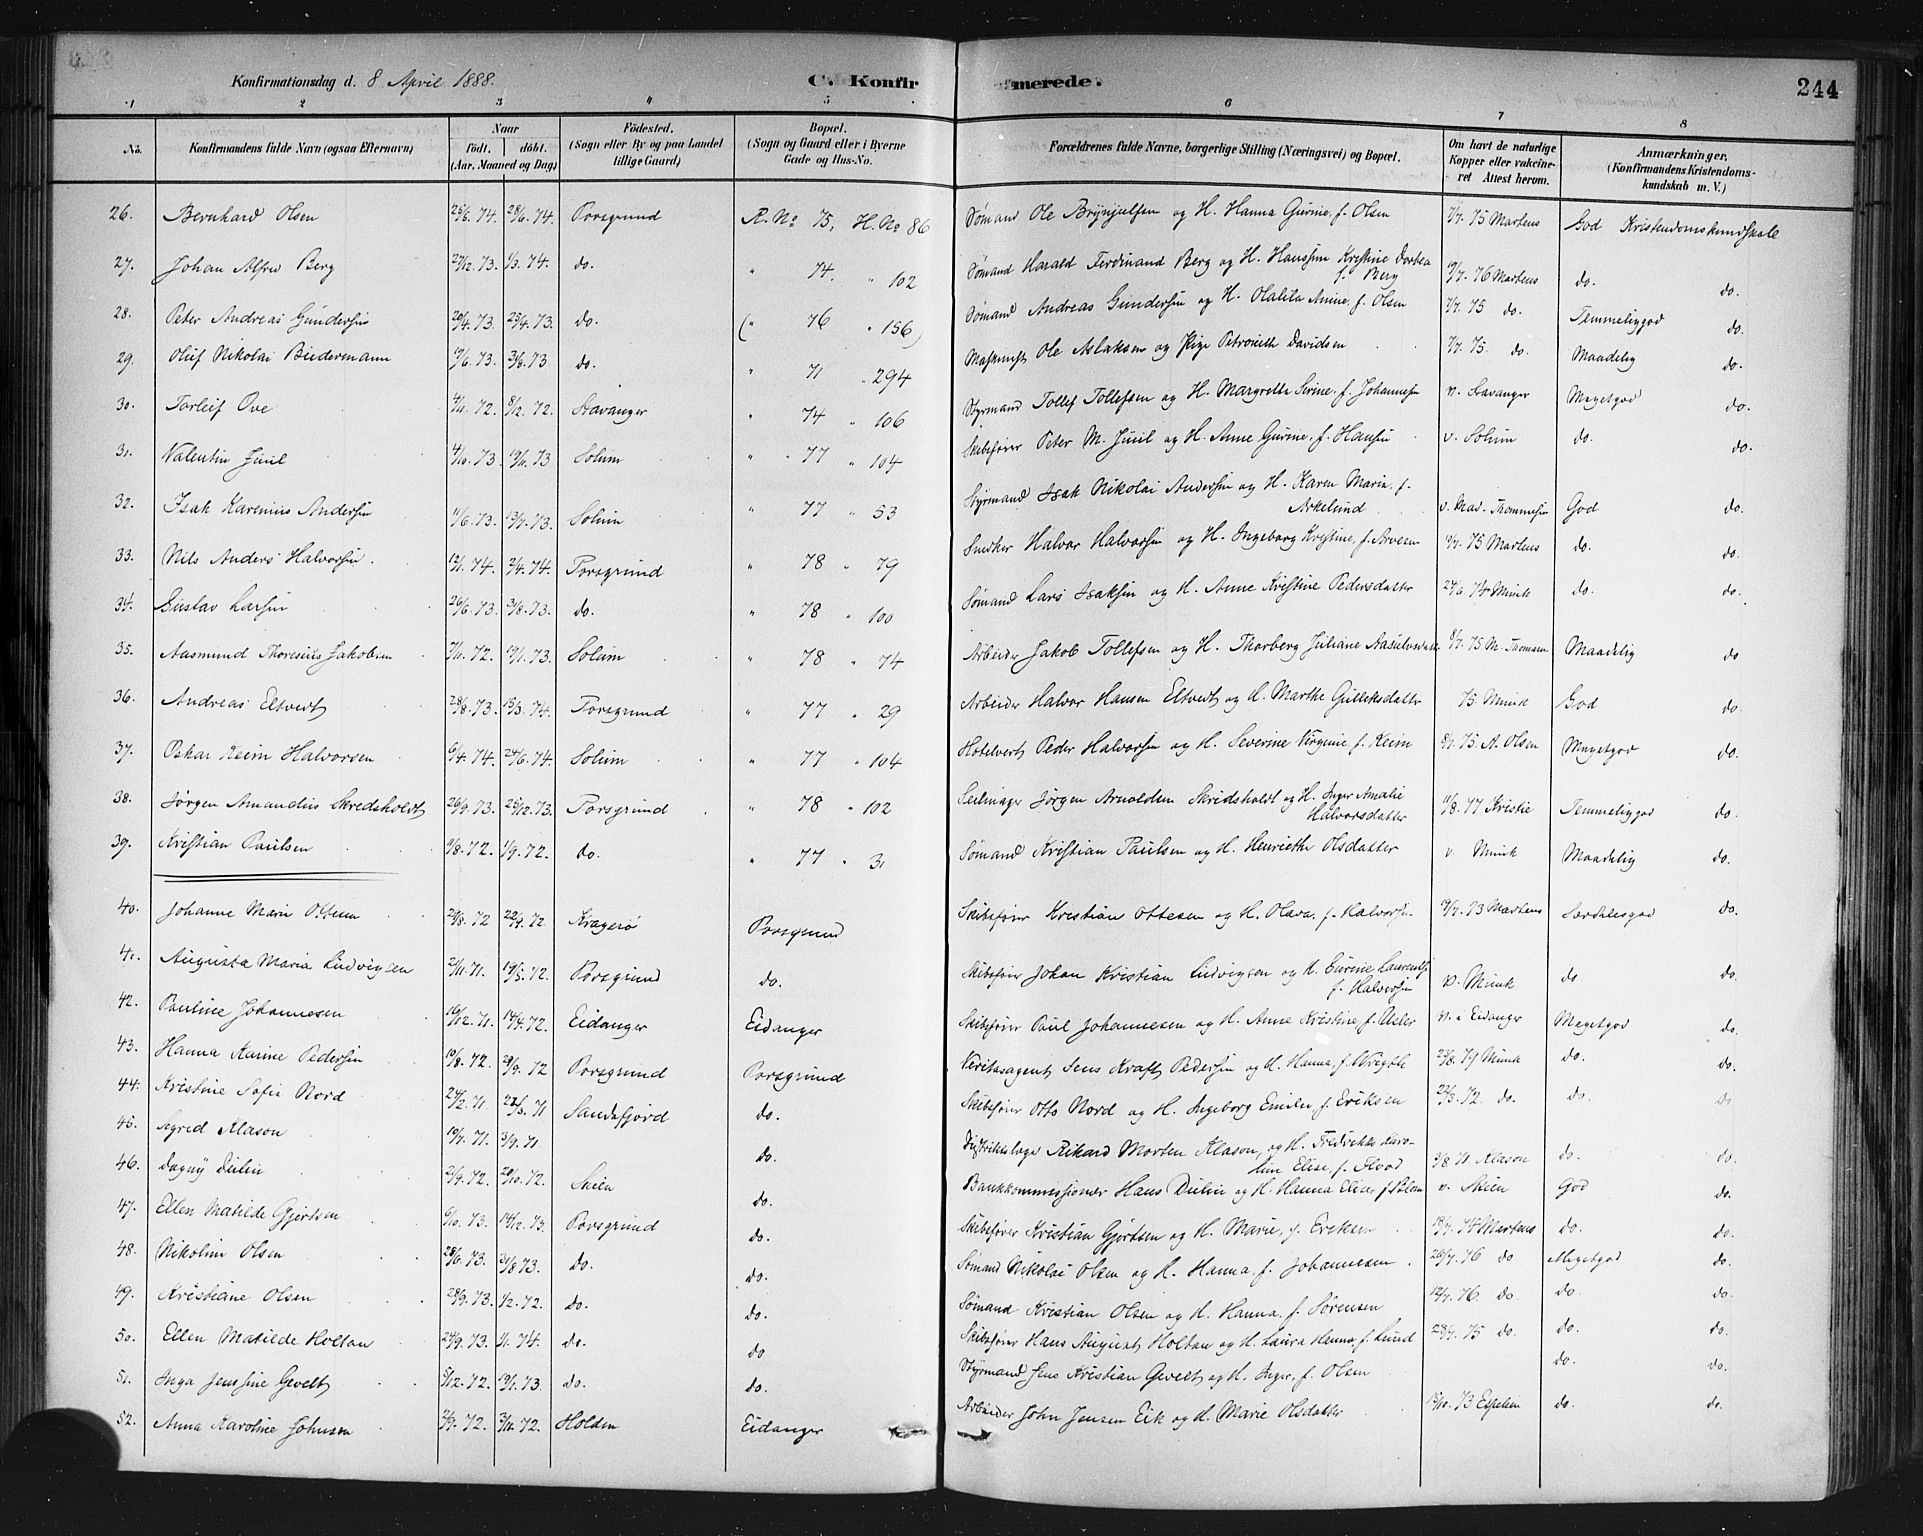 Konfirmationsdag d. 8 April 1888.
C. Konfirmerede.
244
1 2 3 4 5 6 7 8
No. Konfirmandens fulde Navn (ogsaa Efternavn) Naar födt. döbt. (Aar, Maaned og Dag) Födested. (Sogn eller By og paa Landet tillige Gaard) Bopæl. (Sogn og Gaard eller i Byerne Gade og Hus-No. Forældrenes fulde Navne, borgerlige Stilling (Næringsvei) og Bopæl. Om havt de naturlige Kopper eller vakcineret Attest herom. Anmærkninger. (Konfirmandens Kristendomskundskab m. V.)
26. Bernhard Olsen 25/5. 74. 28/6. 74. Porsgrund R. No 75, H. No 86 Sømand Ole Brynjulfsen og H. Hanna Gurine, f. Olsen 7/7. 75 Martens God Kristendomskundskab
27. Johan Alfred Berg 27/12. 73. 1/3. 74. do. " 74. " 102 Sømand Harald Ferdinand Berg og H. Hansine Kristine Dorthea f. Berg 19/7. 76 Martens do. do.
28. Peter Andreas Gundersen 20/4. 73. 25/9. 73. do. (" 76 " 156) Sømand Andreas Gundersen og H. Olalila Anine, f. Olsen 7/7. 75 do. Temmeliggod do.
29. Oluf Nikolai Biedermann 19/6. 73. 3/8. 73 do. " 71 " 294 Maskinist Ole Aslaksen og Pige Petronelle Davidsen 7/7. 75. do. Maadelig do.
30. Torleif Ove 4/11. 72. 8/12. 72. Stavanger " 74 " 106 Styrmand Tollef Tollefsen og H. Margrethe Serine, f. Johannesen v. Stavanger Megetgod do.
31. Valentin Juul 4/10. 73. 19/11. 73 Solum " 77 " 104 Skibsfører Peter M. Juul og H. Anne Gurine, f. Hansen v. Solum do. do.
32. Isak Karenius Andersen 11/6. 73. 13/7. 73. Solum " 77 " 53 Styrmand Isak Nikolai Andersen og H. Karen Maria, f. Arkelund v. Mad. Thommesen God do.
33. Nils Anders Halvorsen 12/1. 74. 2/4. 74. Porsgrund " 78 " 79 Snedker Halvor Halvorsen og H. Ingeborg Kristine, f. Arvesen 9/7. 75 Martens do. do.
34. Gustav Larsen 26/6. 73. 3/8. 73. do. " 78 " 100 Sømand Lars Isaksen og H. Anne Kristine Pedersdatter 24/6. 74 Munk do. do.
35. Aasmund Thoresius Jakobsen 7/11. 72. 19/1. 73. Solum " 78 " 74 Arbeider Jakob Tollefsen og H. Thorberg Juliane Aasulvsdatter 8/7. 75 M. Thomsen Maadelig do
36. Andreas Eltvedt 28/8. 73. 15/3. 74. Porsgrund " 77 " 29 Arbeider Halvor Hansen Eltvedt og H. Marthe Gulleksdatter 75. Munk God do.
37. Oskar Keim Halvorsen 6/4. 74. 24/6. 74. Solum " 77 " 104 Hotelvert Peder Halvorsen og H. Severine Virginie f. Keim 8/7. 75. A. Olsen Megetgod do.
38. Jørgen Amandus Skredsholdt 26/9. 73. 25/12. 73. Porsgrund " 78 " 102 Seilmager Jørgen Arnoldsen Skredsholdt og H. Inger Amalie Halvorsdatter 11/8. 77 Kristie Temmeliggod do.
39. Kristian Paulsen 11/8. 72. 1/9. 72. do. " 77 " 31 Sømand Kristian Paulsen og H. Henriette Olsdatter v. Munk Maadelig do.
40. Johanne Marie Ottesen 29/8. 72 22/9. 72. Kragerø Porsgrund Skibsfører Kristian Ottesen og H. Olava, f. Halvorsen 19/7. 73 Martens Særdelesgod do.
41. Augusta Maria Ludvigsen 21/11. 71. 19/5. 72. Porsgrund do. Skibsfører Johan Kristian Ludvigsen og H. Gurine Laurentse f. Halvorsen v. Munk do do.
42. Pauline Johannesen 16/12. 71. 14/4. 72. Eidanger Eidanger Skibsfører Paul Johannesen og H. Anne Kristine, f. Usler v. i Eidanger Megetgod do.
43. Hanna Karine Pedersen 10/8. 72. 29/9. 72 Porsgrund Porsgrund Veritasagent Jens Kraft Pedersen og H. Hanna, f. Wrigthe 23/8. 79 Munk do. do.
44. Kristine Sofie Nord 24/2. 71. 27/5. 71 Sandefjord do. Skibsfører Otto Nord og H. Ingeborg Emilie, f. Eriksen 23/3. 72. do. do. do
45. Sigrid Klason 10/7. 71. 3/9. 71. do. Distriktslæge Rikard Morten Klason, og H. Fredrikke Karoline Elise, f. Flood 3/8. 71 Klason do. do.
46. Dagny Dulin 21/9. 72. 20/10. 72. Skien do. Bankkommissionær Hans Duliu og H. Hanna Elise, f. v. Skien God do.
47. Ellen Matilde Gjertsen 6/10. 73. 14/12. 73. Porsgrund do. Skibsfører Kristian Gjertsen og H. Marie, f. Eriksen 18/7. 74 Martens do. do.
48. Nikoline Olsen 28/6. 73. 31/8 73. do. do. Sømand Nikolai Olsen og H. Hanna, f. Johannesen 26/7. 76 do Megetgod do.
49. Kristiane Olsen 28/9. 73. 1/2. 72. do. do. Sømand Kristian Olsen og H. Hanna, f. Sørensen 12/7. 76. do do. do.
50. Ellen Matilde Holtan 24/9. 73. 1/1. 74. do. do Skibsfører Hans August Holtan og H. Laura Hanna, f. Lund 28/7. 75 do. do. do.
51. Inga Jensine Gevelt 5/12. 72. 19/1. 73. do. do. Styrmand Jens Kristian Gevelt og H. Inger, f. Olsen do. do.
52. Anna Karoline Johnsen 2/9. 72. 3/11. 72. Holden Eidanger Arbeider John Jensen Eik og H. Marie Olsdatter 15/10. 73 Espelien do. do.